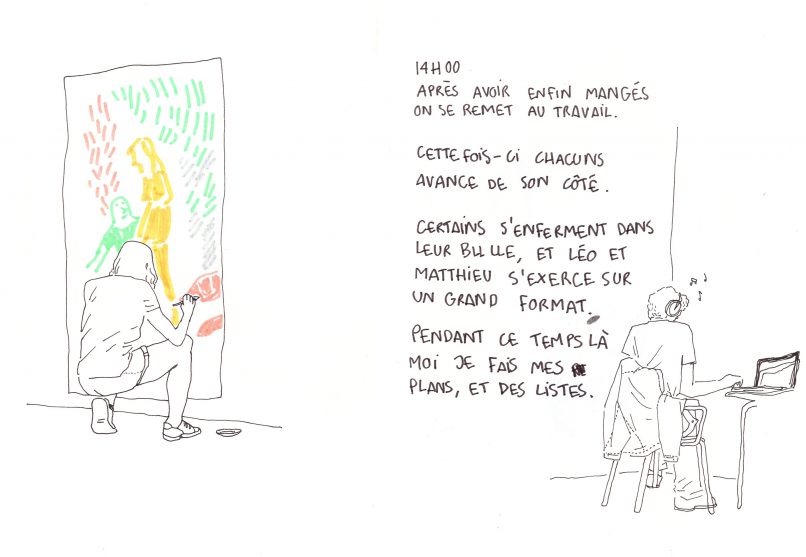 14H00
APRÈS AVOIR ENFIN MANGÉS
ON SE REMET AU TRAVAIL.
CETTE FOIS-CI CHACUNS
AVANCE DE SON CÔTÉ.
CERTAINS S'ENFERMENT DANS
LEUR BULLE, ET LÉO ET
MATTHIEU S'EXERCE SUR
UN GRAND FORMAT.
PENDANT CE TEMPS LÀ
MOI JE FAIS MES
PLANS, ET DES LISTES.